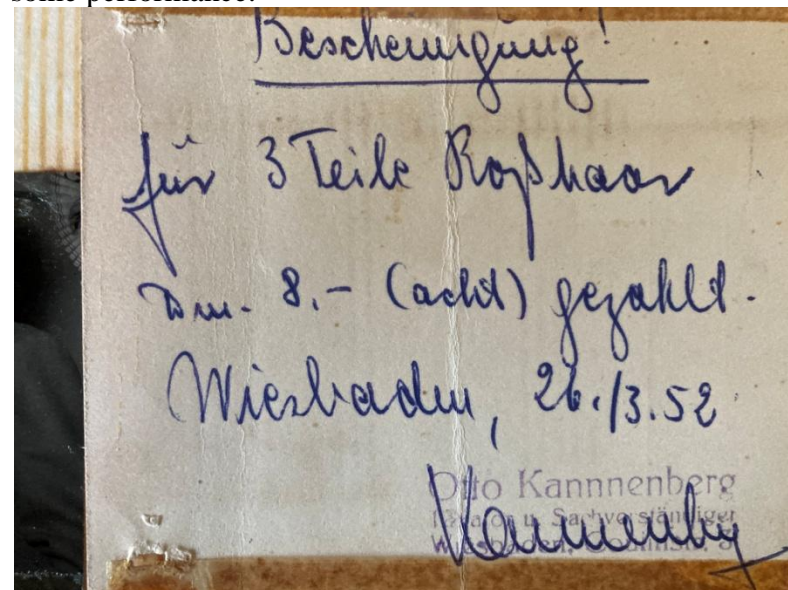 some performance.
Bescheinigung!
für 3 Teile Roßhaar
Dm. 8.- (acht) gezahlt.
Wiesbaden, 26./3.52
Otto Kannnenberg
u. Sachverständiger
Wiesbaden,